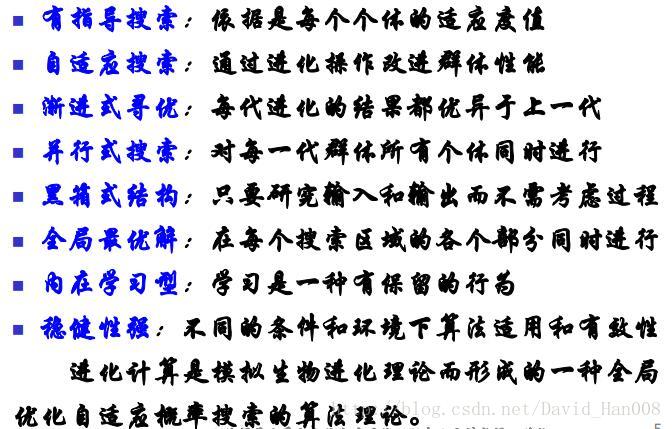 ▪ 有指导搜索：依据是每个个体的适应度值
▪ 自适应搜索：通过进化操作改进群体性能
▪ 渐进式寻优：每代进化的结果都优异于上一代
▪ 并行式搜索：对每一代群体所有个体同时进行
▪ 黑箱式结构：只要研究输入和输出而不需考虑过程
▪ 全局最优解：在每个搜索区域的各个部分同时进行
▪ 内在学习型：学习是一种有保留的行为
▪ 稳健性强：不同的条件和环境下算法适用和有效性
进化计算是模拟生物进化理论而形成的一种全局
优化自适应概率搜索的算法理论。
https://blog.csdn.net/David_Han008
5